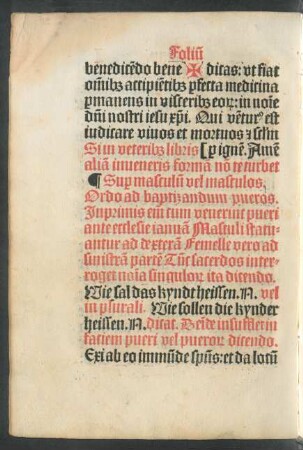 Foliũ
benedicẽdo bene ✠ ditas: vt fiat
om̃ibꝫ actipiẽtibꝫ ꝑfecta medicina
ꝑmanens in visceribꝫ eoꝝ: in noĩe
dñi nostri iesu xp̃i. Qui vẽtur᷒ est
iudicare viuos et mortuos ⁊ sc̃lm
Si in veteribꝫ libris [ꝑ ignẽ. Amẽ
aliã inueneris formã nõ te turbet
¶ Sup masculũ vel masculos.
Ordo ad baptizandum pueros.
Inprimis em̃ tum venerint pueri
ante ecclesie ianuã Masculi statu⸗
antur ad dexterã Femelle vero ad
sinistrã partẽ Tũc sacerdos inter⸗
roget noĩa singuloꝝ ita dicendo.
Wie sal das kyndt heissen. N. vel
in plurali. Wie sollen die kynder
heissen. N. dicat. Deĩde insufflet in
faciem pueri vel pueroꝝ dicendo.
Exi ab eo immũde sp̃us: et da locũ